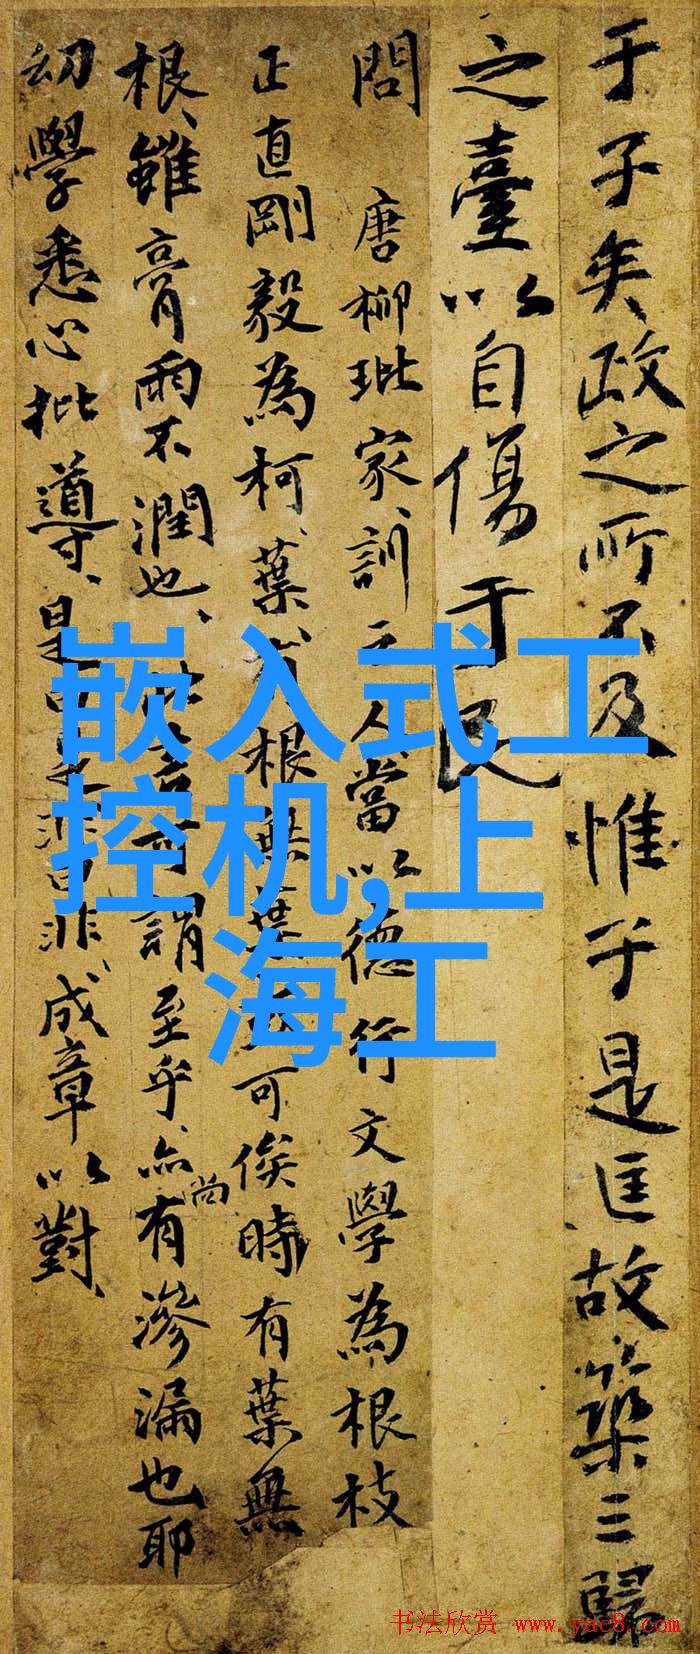 于子矣政之所不及惟于是匡故築三歸
之臺以自傷于民
問 唐柳玭家訓云人當以德行文學為根枝
正直剛毅為柯葉有根無葉或可俟時有葉無
根雖膏雨不潤也可謂至乎亦尚有滲漏也耶
幼學悉心批導是曰是非曰非成章以對
嵌入式工
控机,上
海工
书法欣赏 www.yac8.com